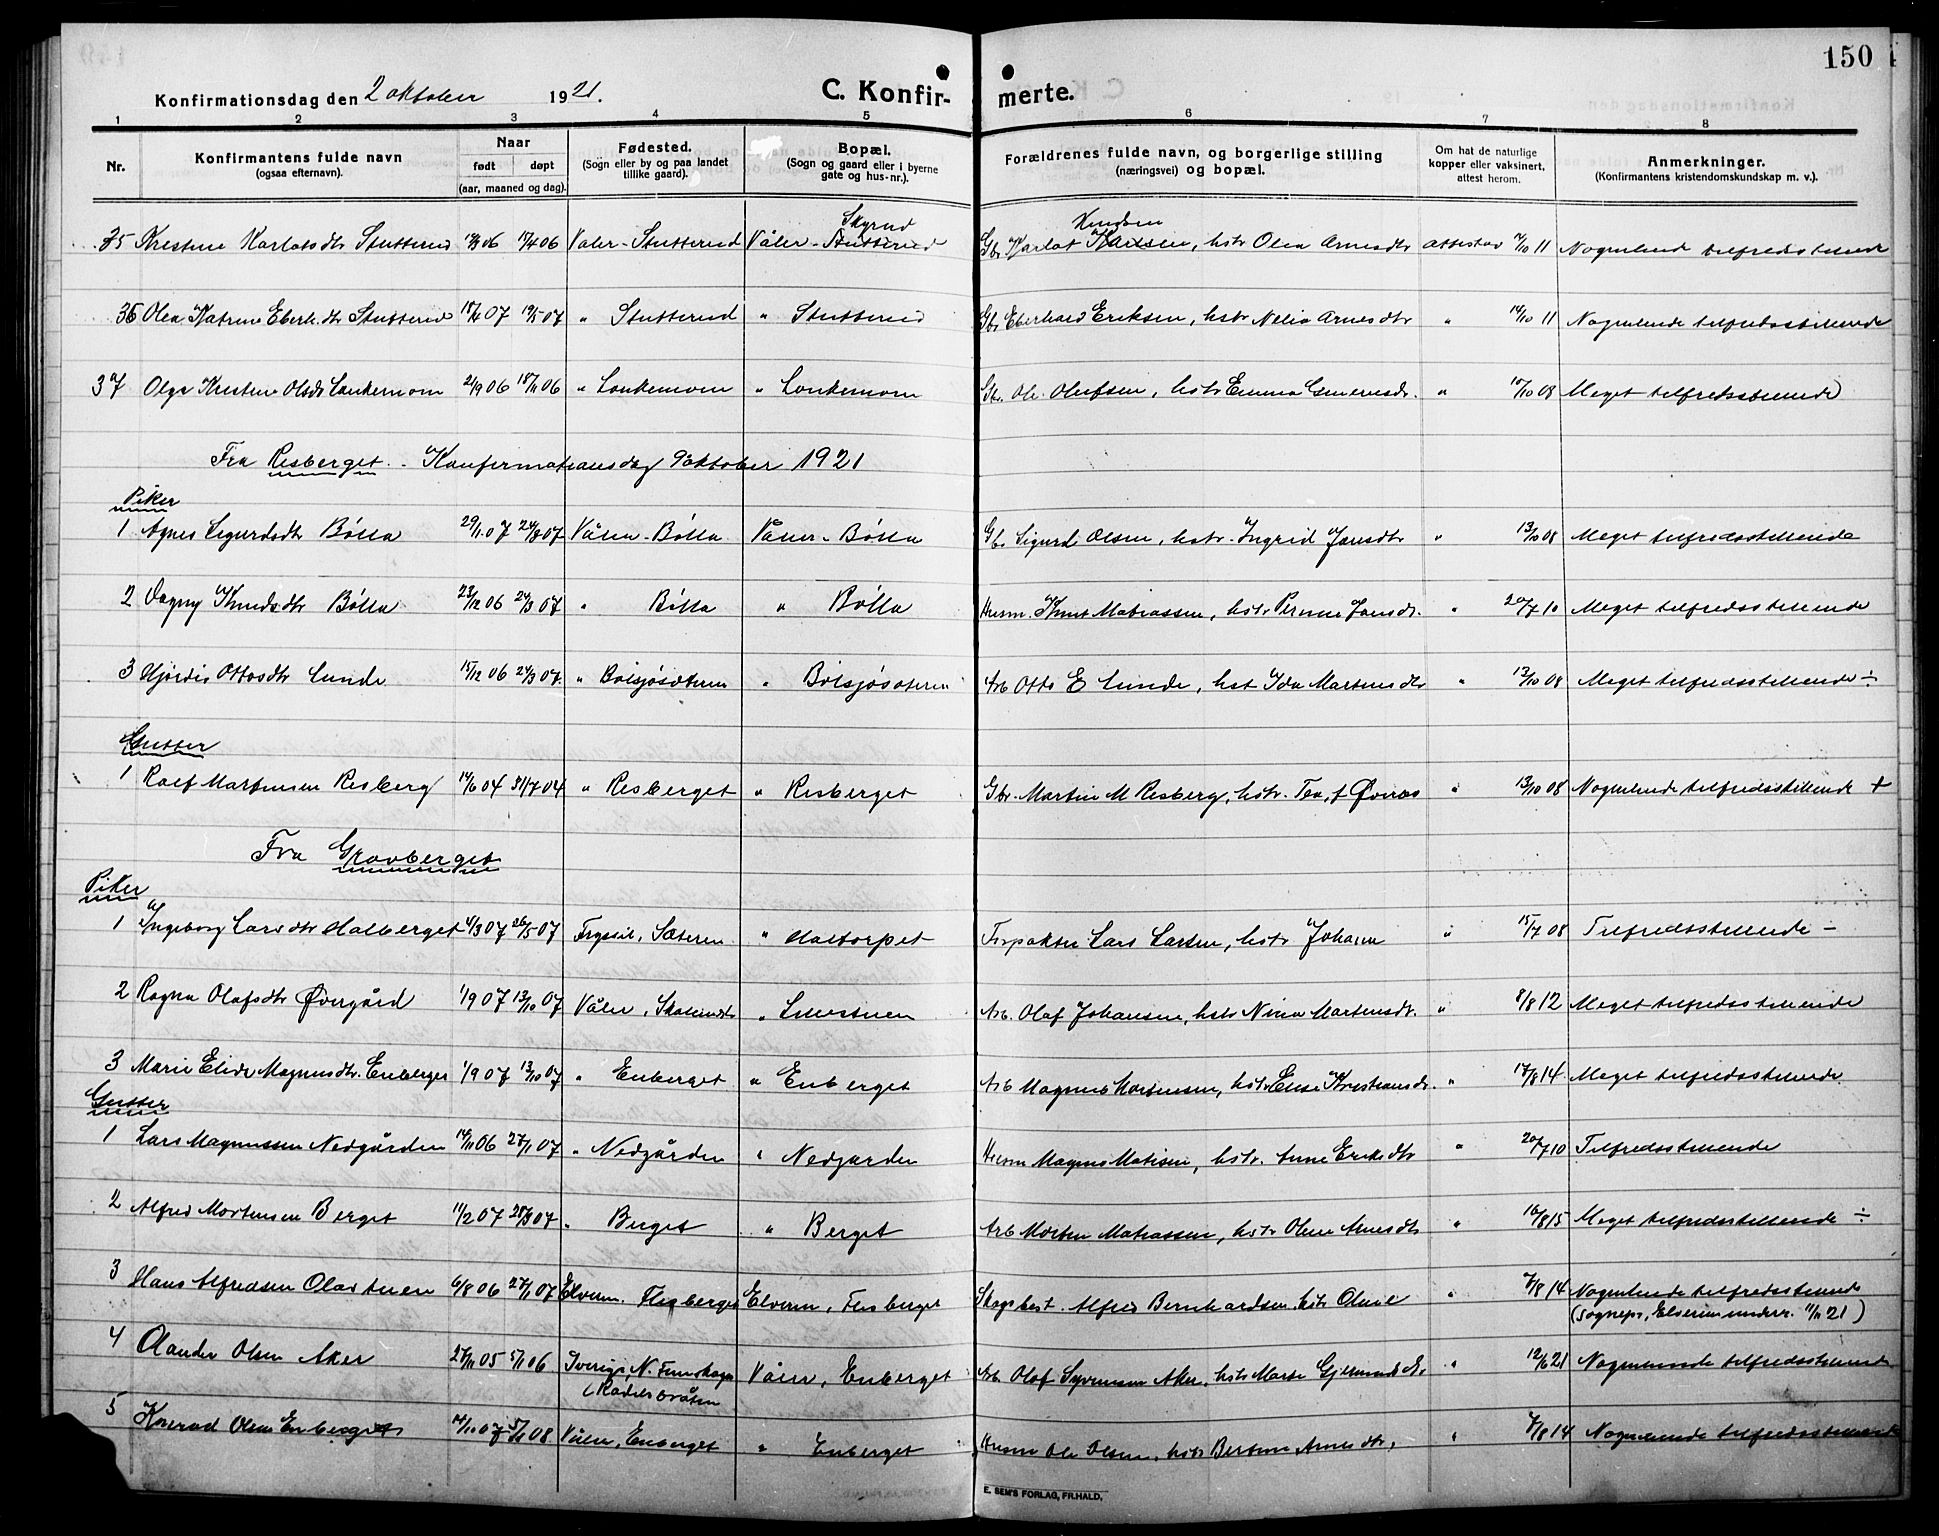 150
Konfirmationsdag den 2 oktober 1921. C. Konfir- merte.
1 2 3 4 5 6 7 8
Nr. Konfirmantens fulde navn (ogsaa efternavn). Naar født døpt (aar, maaned og dag). Fødested. (Sogn eller by og paa landet tillike gaard). Bopæl. (Sogn og gaard eller i byerne gate og hus-nr.). Forældrenes fulde navn, og borgerlige stilling (næringsvei) og bopæl. Om hat de naturlige kopper eller vaksinert, attest herom. Anmerkninger. (Konfirmantens kristendomskundskap m. v.).
Skyrud Knudsen
35 Kristine Karlotsdtr Stutterud 06 17/4 06 Valer - Stutterud Våler - Stutterud Gbr Karlot Karlsen, hstr Olea Arnesdtr attestav 11 Nogenlunde tilfredsstillende
36 Olea Katrine Eberh.dtr Stutterud 07 19/5 07 " Stutterud " Stutterud Gbr Eberhard Eriksen, hstr Nelia Arnesdtr " 14/10 11 Nogenlunde tilfredsstillende
37 Olga Kristine Olsdtr Lonkemoen 21/9 06 18/11 06 " Lonkemoen " Lonkemoen Gbr. Ole Olufsen, hstr Emma " 10/10 08 Meget tilfredsstillende
Fra Risberget. - Konfirmationsdag 9 oktober 1921
Piker
1 Agnes Sigurdsdtr Bölla 29/1 07 24/3 07 Våler - Bölla Våler - Bölla Gbr Sigurd Olsen, hstr. Ingrid Jansdtr " 13/10 08 Meget tilfredsstillende
2 Dagny Knudsdtr Bölla 23/12 06 24/3 07 " Bölla " Bölla Husm. Knut Matiassen, hstr Pernine Jansdr. " 20/7 10 Meget tilfredsstillende
3 Hjördis Ottosdtr Lunde 15/12 06 24/3 07. " Bölsjösæteren " Bölsjösæteren Arb Otto E Lunde, hst Ida Martensdtr " 13/10 08 Meget tilfredsstillende ÷
Gutter
1 Rolf Martinsen Risberg 14/6 04 31/7 04 " Risberget " Risberget Gbr. Martin M Risberg, hstr. Tea, f Øveraas " 13/10 08 Nogenlunde tilfredsstillende +
Fra Gravberget
Piker
1 Ingeborg Larsdtr Halberget 4/3 07 26/5 07 Trysil, Sæteren " Haltorpet Forpakter Lars Larsen, hstr Johanna " 15/7 08 Tilfredsstillende -
2 Ragna Olafsdtr Øvergård 1/9 07 13/10 07 Våler, " Arb. Olaf Johansen, hstr Nina Martensdr. " 8/8 12 Meget tilfredsstillende
3 Marie Elide Magnusdtr. Enberget 1/9 07 13/10 07 " Enberget " Enberget Arb Magnus Mortensen, hstr Elise Kristiansdr. " 17/8 14 Meget tilfredsstillende
Gutter
1 Lars Magnussen Nedgården 14/11 06 27/1 07 " Nedgården " Nedgården Husm Magnus Matisen, hstr. Anne Eriksdtr " 20/7 10 Tilfredsstillende
2 Alfred Mortensen Berget 11/2 07 28/3 07 " Berget " Berget Arb Morten Matiassen, hstr Oline Arnesdtr " 16/8 15 Meget tilfredsstillende ÷
3 Hans Alfredsen Olastuen 6/8 06 27/1 07 Elverum. Flisberget Elverum, Flisberget Skogsbest. Alfred Bernhardsen, hstr " 7/8 14 Nogenlunde tilfredsstillende
(sognepr, Elverum underr. 11/11 21)
4 Olander Olsen Aker 27/11 05 5/1 06 Sverige, N. Finnskoga Våler, Enberget Arb Olof Syversen Aker, hstr Marte Gjermundsdtr. " 12/6 21 Nogenlunde tilfredsstillende
5 Konrad Olsen Enberget 14/11 07 5/1 08 Våler, Enberget " Enberget Husm Ole Olsen, hstr Bertine Arnesdtr, " 7/8 14 Nogenlunde tilfredsstillende
E. SEM'S FORLAG, FR.HALD.